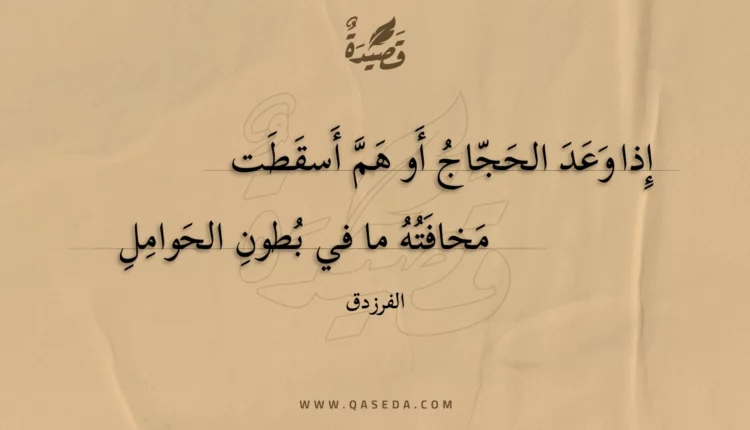 قَصِيْدَةٌ
إِذا وَعَدَ الحَجّاجُ أَو هَمَّ أَسقَطَت
مَخافَتُهُ ما في بُطونِ الحَوامِلِ
الفرزدق
WWW.QASEDA.COM